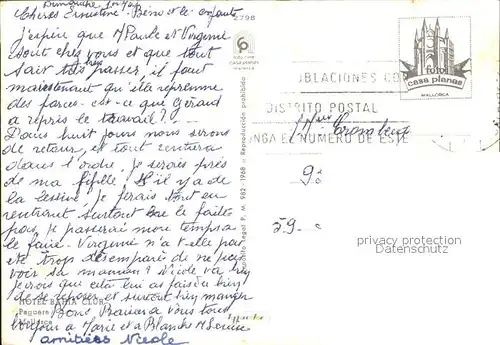 Dimanche soir
Chères Ernestine - Bèno et les enfants
J'espère que Mr Paule et Virgenie
sont chez vous et que tout
sait très bien passer, il faut
maintenant qu'ils reprenne
des forces - est-ce que Gérard
a repris le travail? -
Dans huit jours nous serons
de retour, et tout rentrera
dans l'ordre. Je serais près
de ma fifille. S'il y a de
la lessive, je ferais tout en
rentrant surtout ne le faites
pas, je passerai mon temps a
le faire. Virgenie n'a-t-elle pas
été trop désemparée de ne pas
voir sa maman? Nicole va bien
je crois que cela lui as fait du bien
de se reposer et surtout bien manger
Bons Baisers à vous tous
bonjour à Marie et a Blanche
amitiées Nicole
2798
foto color
casa planas
mallorca
foto
casa planas
MALLORCA
POBLACIONES CON
DISTRITO POSTAL
PONGA EL NUMERO DE ESTE
59
Depósito Legal P. M. 982 - 1968 - Reproducción prohibida
HOTEL BAHIA CLUB
Paguera
Mallorca
privacy protection
Datenschutz